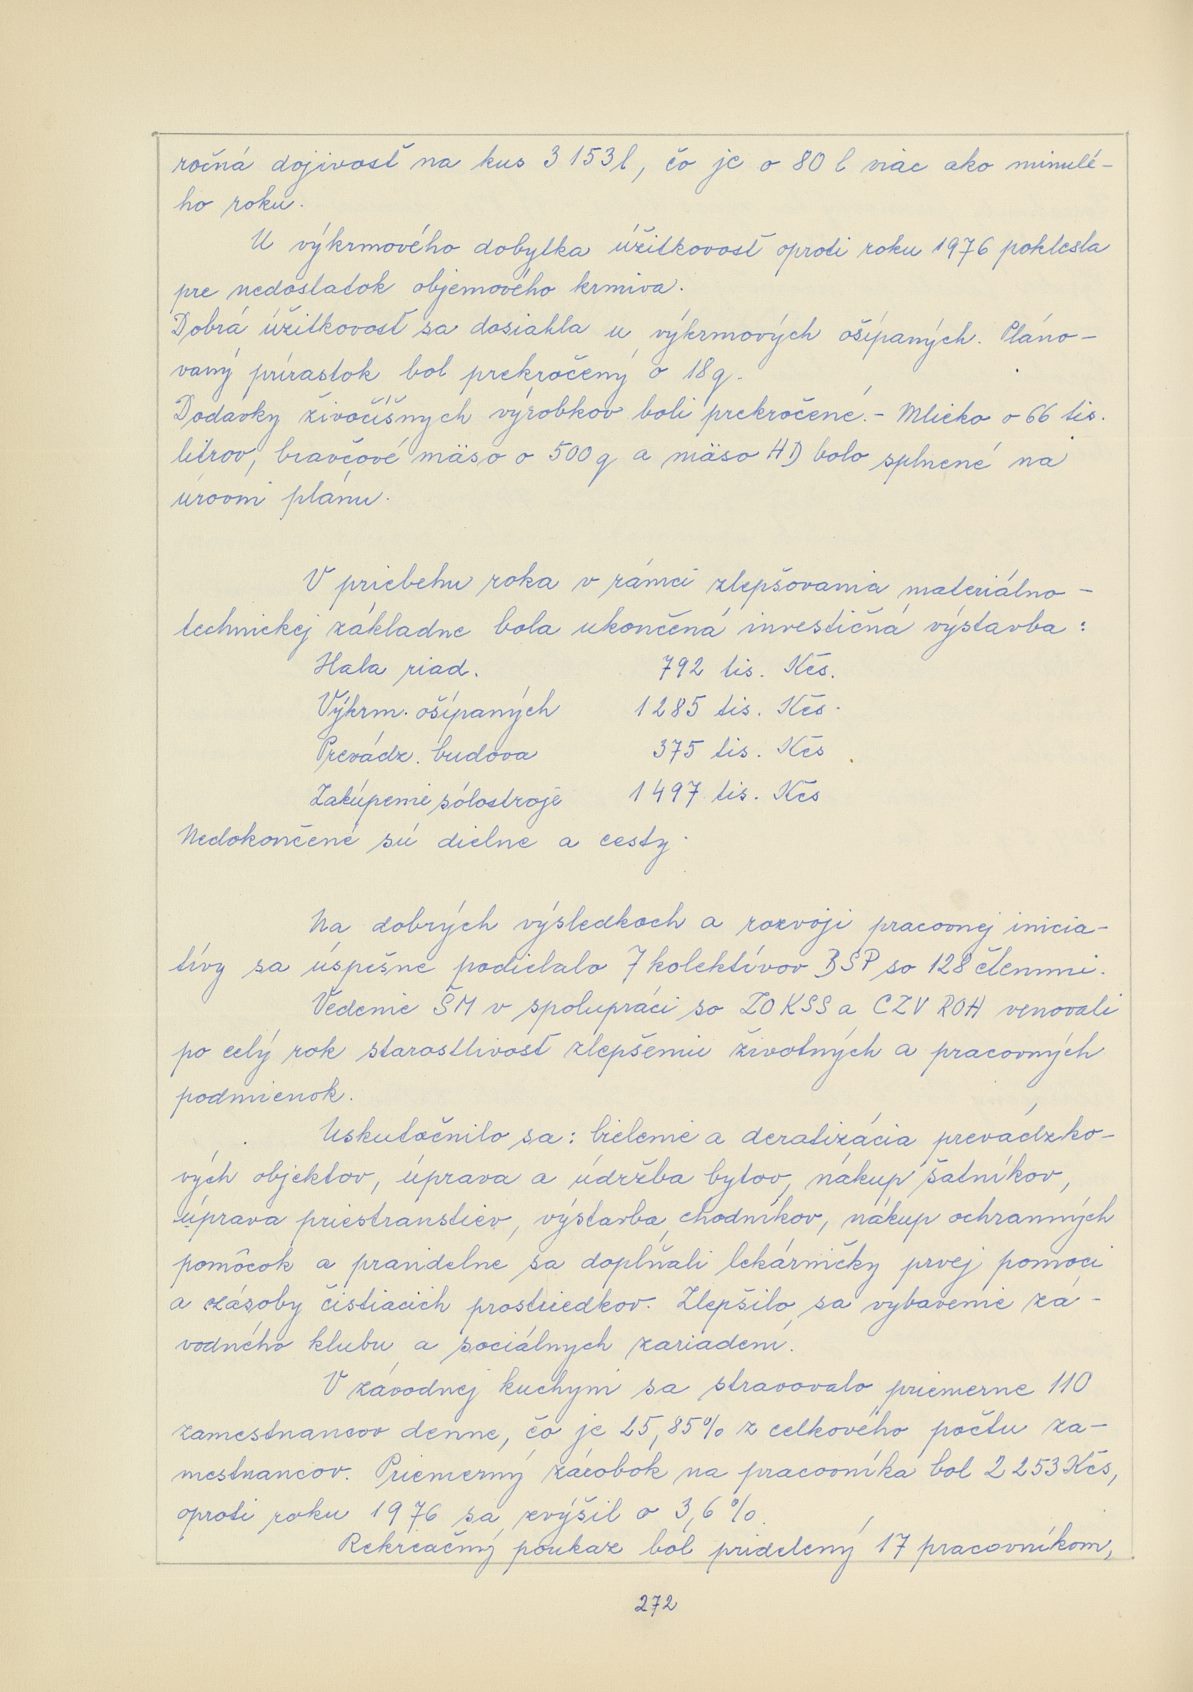 ročná dojivosť na kus 3 153 l, čo je o 80 l viac ako minulé-
ho roku.
U výkrmového dobytka úžitkovosť oproti roku 1976 poklesla
pre nedostatok objemového krmiva.
Dobrá úžitkovosť sa dosiahla u výkrmových ošípaných. Pláno-
vaný prírastok bol prekročený o 18 q.
Dodávky živočíšnych výrobkov boli prekročené. - Mlieko o 66 tis.
litrov, bravčové mäso o 500 q a mäso HD bolo splnené na
úrovni plánu.
V priebehu roka v rámci zlepšovania materiálno-
technickej základne bola ukončená investičná výstavba:
Hala riad. 792 tis. Kčs.
Výkrm. ošípaných 1 285 tis. Kčs.
Prevádz. budova 375 tis. Kčs
Zakúpenie sólostroje 1 497 tis. Kčs
Nedokončené sú dielne a cesty.
Na dobrých výsledkoch a rozvoji pracovnej inicia-
tívy sa úspešne podielalo 7 kolektívov BSP so 128 členmi.
Vedenie ŠM v spolupráci so ZO KSS a CZV ROH venovali
po celý rok starostlivosť zlepšeniu životných a pracovných
podmienok.
Uskutočnilo sa: bielenie a deratizácia prevádzko-
vých objektov, úprava a údržba bytov, nákup šatníkov,
úprava priestranstiev, výstavba chodníkov, nákup ochranných
pomôcok a pravidelne sa doplňali lekárničky prvej pomoci
a zásoby čistiacich prostriedkov. Zlepšilo sa vybavenie zá-
vodného klubu a sociálnych zariadení.
V závodnej kuchyni sa stravovalo priemerne 110
zamestnancov denne, čo je 25,85% z celkového počtu za-
mestnancov. Priemerný zárobok na pracovníka bol 2 253 Kčs,
oproti roku 1976 sa zvýšil o 3,6 %.
Rekreačný poukaz bol pridelený 17 pracovníkom,
272